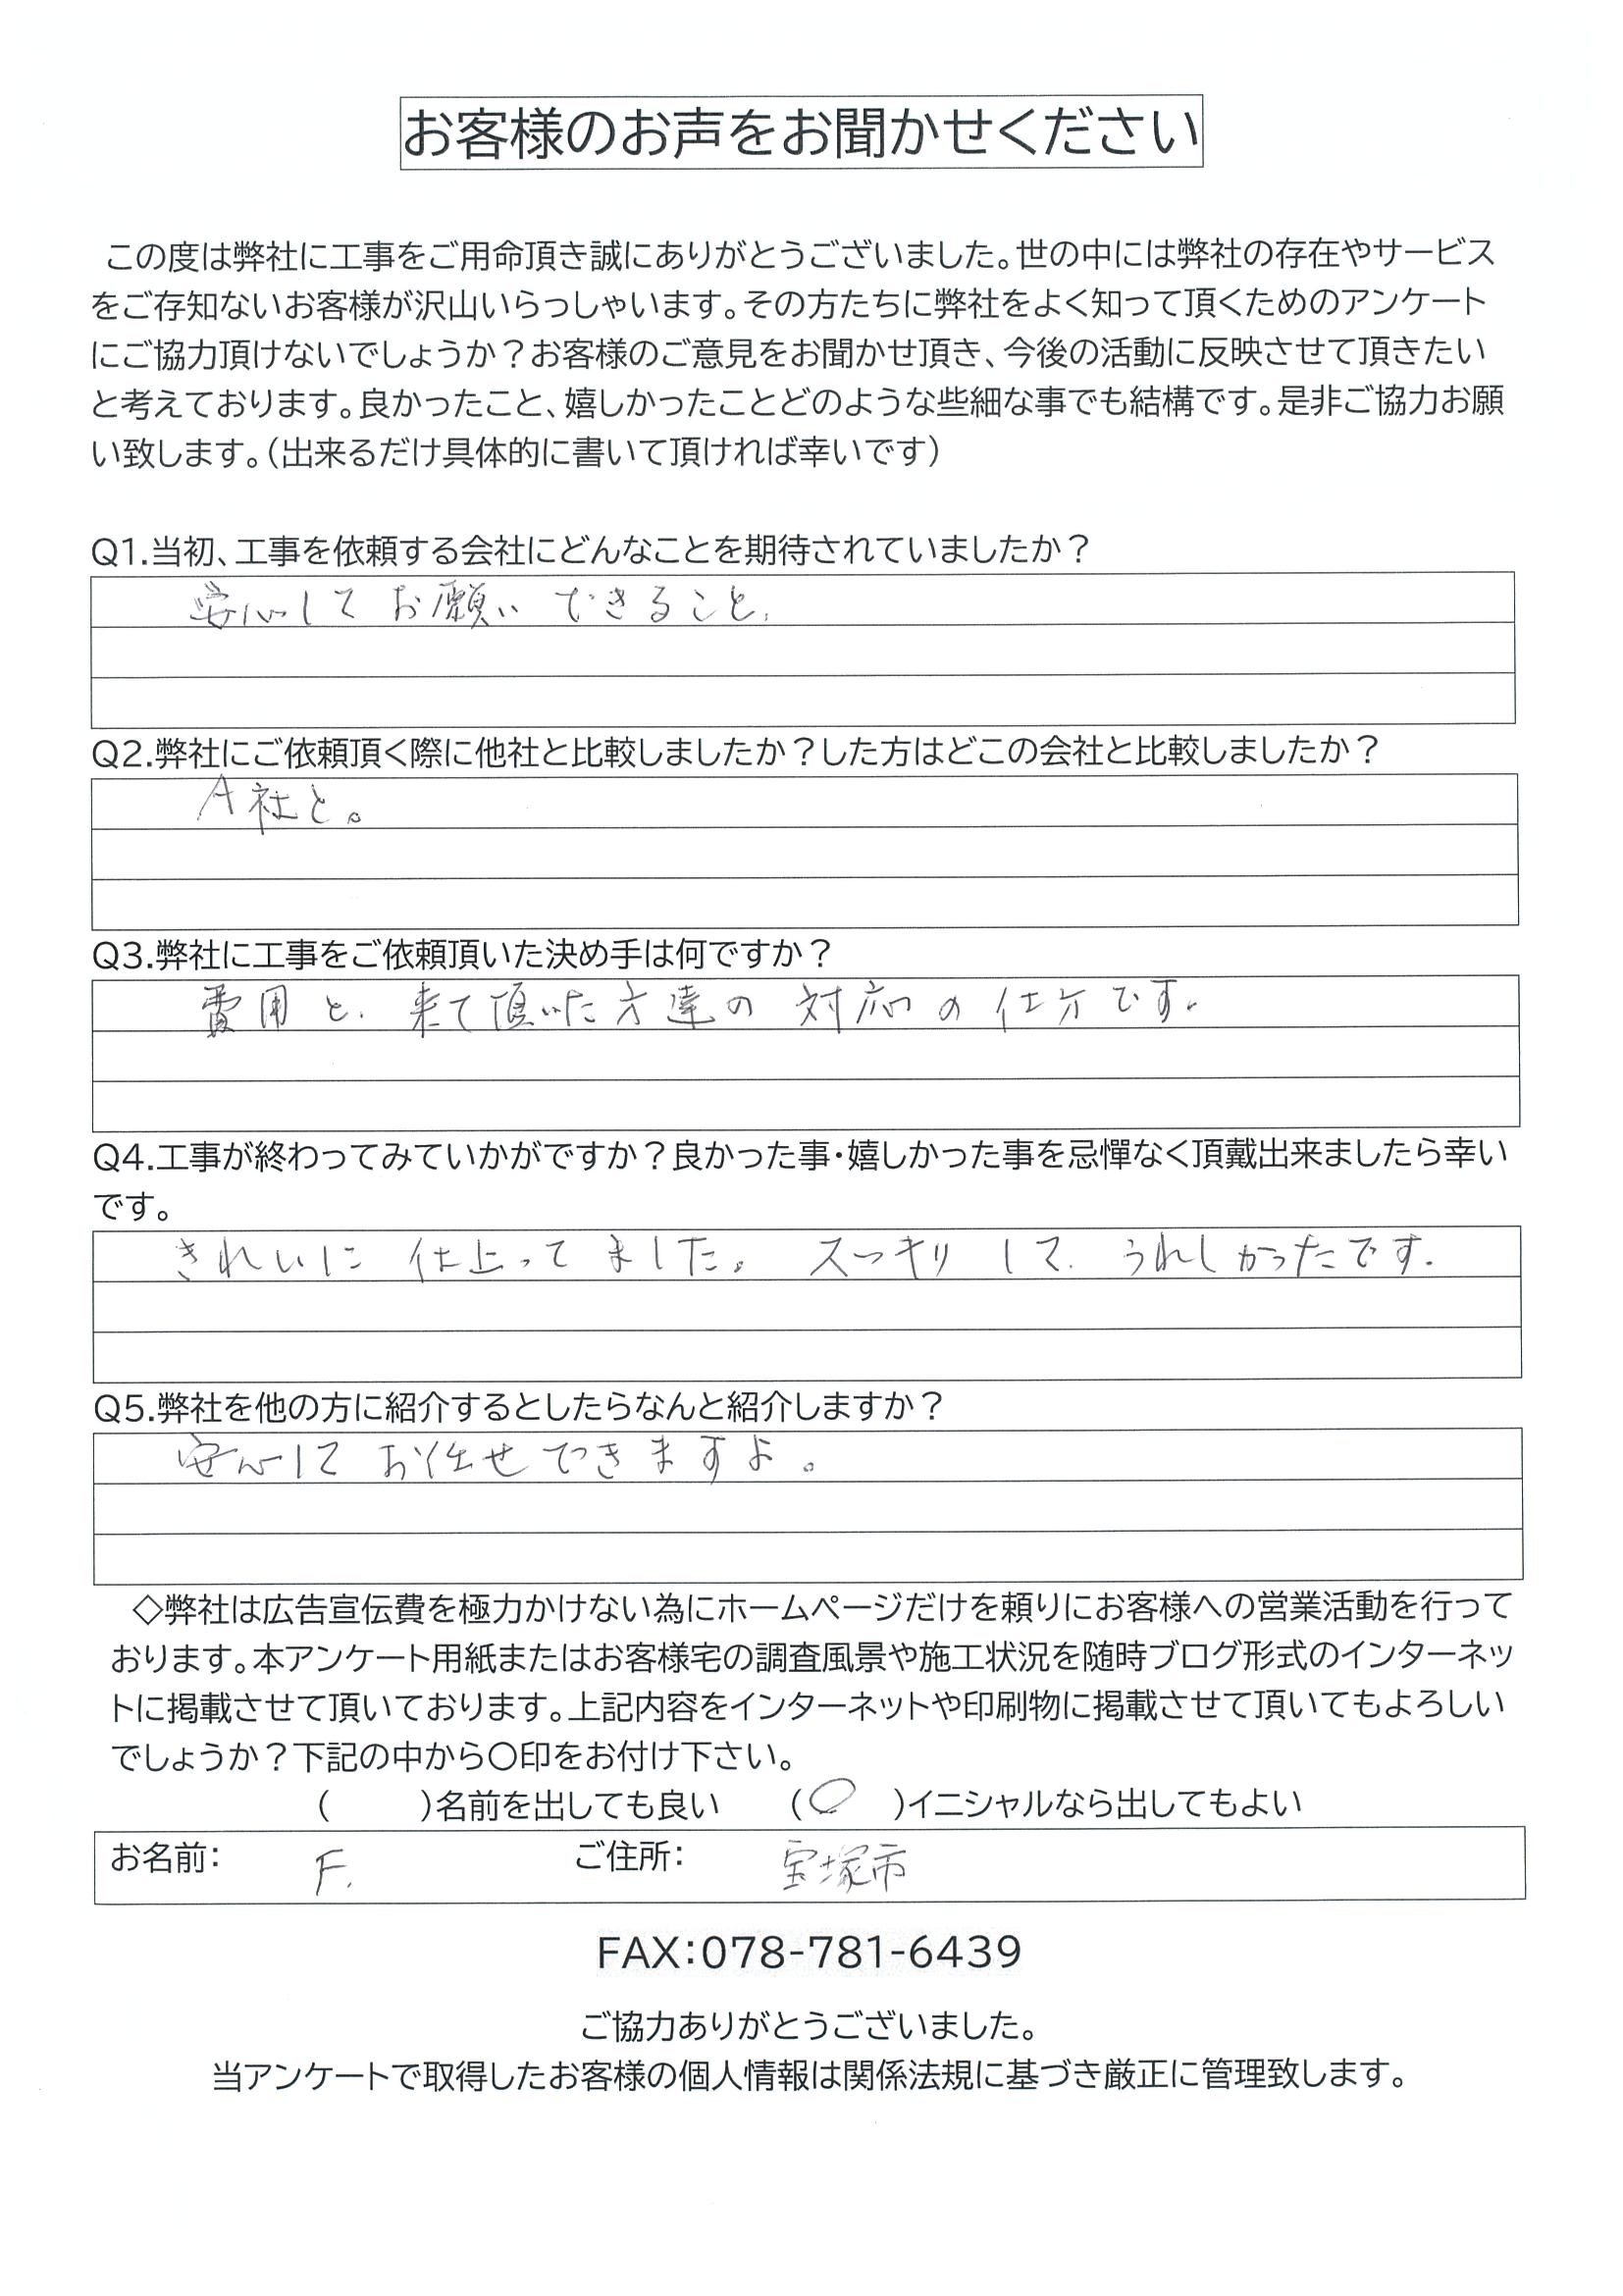 お客様のお声をお聞かせください
この度は弊社に工事をご用命頂き誠にありがとうございました。世の中には弊社の存在やサービス
をご存知ないお客様が沢山いらっしゃいます。その方たちに弊社をよく知って頂くためのアンケート
にご協力頂けないでしょうか？お客様のご意見をお聞かせ頂き、今後の活動に反映させて頂きたい
と考えております。良かったこと、嬉しかったことどのような些細な事でも結構です。是非ご協力お願
い致します。（出来るだけ具体的に書いて頂ければ幸いです）
Q1.当初、工事を依頼する会社にどんなことを期待されていましたか？
安心して お願い できること。
Q2.弊社にご依頼頂く際に他社と比較しましたか？した方はどこの会社と比較しましたか？
A社と。
Q3.弊社に工事をご依頼頂いた決め手は何ですか？
費用と、来て頂いた方達の 対応の 仕方です。
Q4.工事が終わってみていかがですか？良かった事・嬉しかった事を忌憚なく頂戴出来ましたら幸い
です。
きれいに 仕上ってました。 スッキリ して、うれしかったです。
Q5.弊社を他の方に紹介するとしたらなんと紹介しますか？
安心して お任せできますよ。
◇弊社は広告宣伝費を極力かけない為にホームページだけを頼りにお客様への営業活動を行って
おります。本アンケート用紙またはお客様宅の調査風景や施工状況を随時ブログ形式のインターネッ
トに掲載させて頂いております。上記内容をインターネットや印刷物に掲載させて頂いてもよろしい
でしょうか？下記の中から〇印をお付け下さい。
（　　）名前を出しても良い　（〇　）イニシャルなら出してもよい
お名前： F. ご住所： 宝塚市
FAX：078-781-6439
ご協力ありがとうございました。
当アンケートで取得したお客様の個人情報は関係法規に基づき厳正に管理致します。